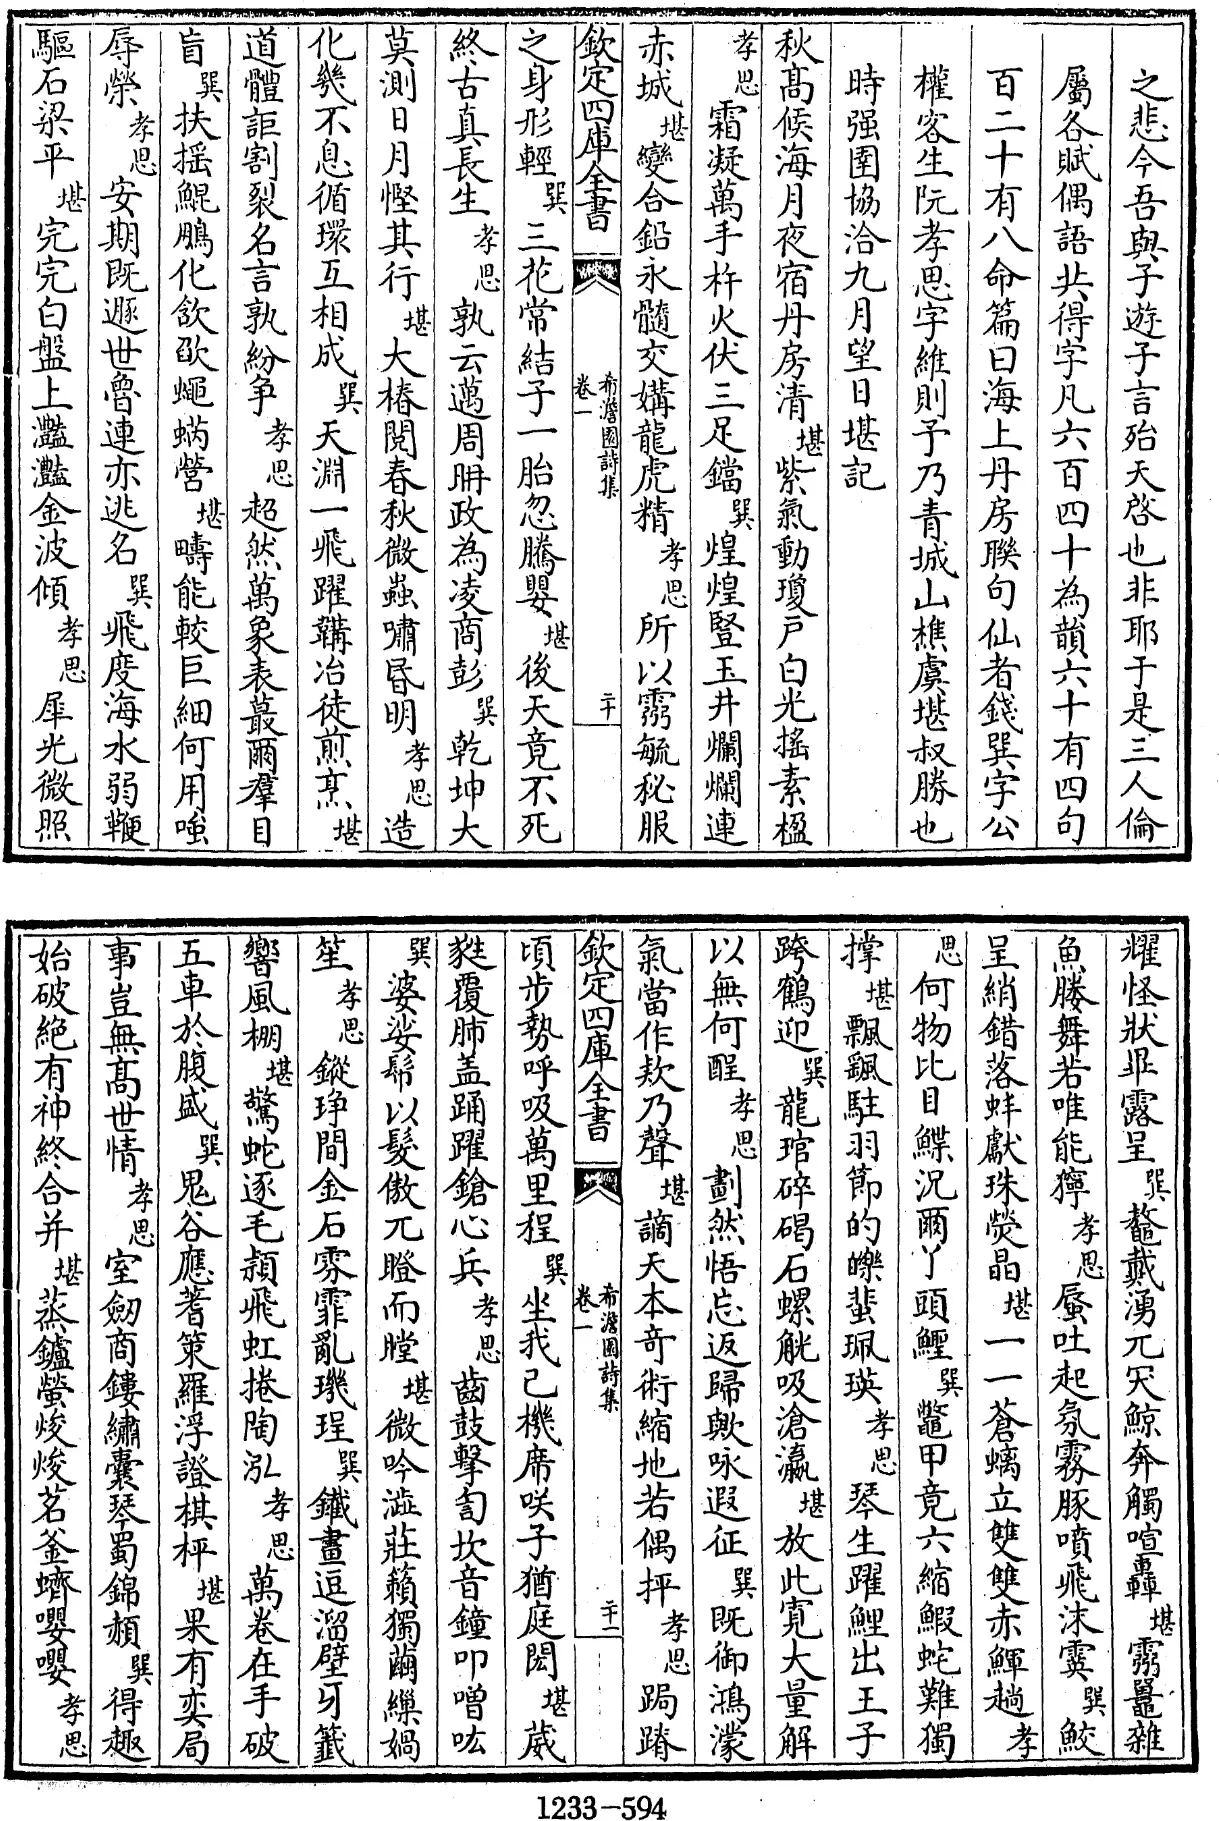 之悲今吾與子遊子言殆天啓也非耶于是三人倫
屬各賦偶語共得字凡六百四十為韻六十有四句
百二十有八命篇曰海上丹房聯句仙者錢巽字公
權客生阮孝思字維則予乃青城山樵虞堪叔勝也
時强圉協洽九月望日堪記
秋髙候海月夜宿丹房清堪紫氣動瓊戸白光搖素楹
孝思霜凝萬手杵火伏三足鐺巽煌煌豎玉井爛爛連
赤城堪變合鉛永髓交媾龍虎精孝思所以霛毓秘服
欽定四庫全書
希澹園詩集
卷一
二十
之身形輕巽三花常結子一胎忽騰嬰堪後天竟不死
終古真長生孝思孰云邁周冊政為凌商彭巽乾坤大
莫測日月慳其行堪大椿閱春秋微蝱嘯昏明孝思造
化幾不息循環互相成巽天淵一飛躍鞲冶徒煎烹堪
道體詎割裂名言孰紛争孝思超然萬象表蕞爾羣目
盲巽扶揺鯤鵬化欻歘蠅蝸營堪疇能較巨細何用嗤
辱榮孝思安期既遯世魯連亦逃名巽飛度海水弱鞭
驅石梁平堪完完白盤上灩灩金波傾孝思犀光微照
耀怪狀畢露呈巽鼇戴湧兀突鯨奔觸喧轟堪霛鼉雜
魚媵舞若唯能獰孝思蜃吐起氛霧豚噴飛沫霙巽鮫
呈綃錯落蚌獻珠熒晶堪一一蒼螭立雙雙赤鯶趟孝
思何物比目鰈況爾丫頭鯹巽鼈甲竟六縮鰕蛇難獨
撑堪飄飄駐羽節的皪蜚珮瑛孝思琴生躍鯉出王子
跨鶴迎巽龍琯碎碣石螺觥吸滄瀛堪放此寛大量解
以無何酲孝思劃然悟忘返歸歟咏遐征巽既御鴻濛
氣當作欸乃聲堪謫天本竒術縮地若偶抨孝思跼蹐
欽定四庫全書
希澹園詩集
卷一
二十一
頃步勢呼吸萬里程巽坐我己機席咲子猶庭閎堪葳
蕤覆肺盖踊躍鎗心兵孝思齒鼓擊訇坎音鐘叩噌吰
巽婆娑帬以髮傲兀瞪而瞠堪微吟澁莊籟獨繭繅媧
笙孝思鏦琤間金石雰霏亂璣珵巽鐵畫逗溜壁牙籖
響風棚堪驚蛇逐毛頴飛虹捲陶泓孝思萬卷在手破
五車於腹盛巽鬼谷應蓍策羅浮證棋枰堪果有奕局
事豈無髙世情孝思室劒商鏤繡囊琴蜀錦赬巽得趣
始破絶有神終合并堪蒸鑪螢焌焌茗釜蠐嚶嚶孝思
1233-594